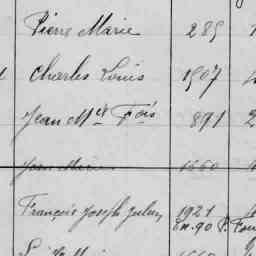 Pierre Marie 289
Charles Louis 1507
Jean Mel Fois 891
Jean Marie 1660
François Joseph Julien 1921
En. 90 P.